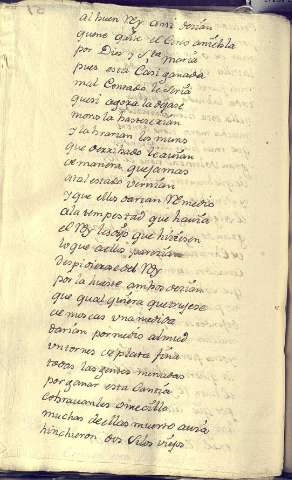 al buen Rey ansi desian
quene quite el Cerco aniebla
por Dios y Sta maria
pues esta Casi ganada
mal Contado le sería
quesi agora la dejase
monola bastecerian
y labrarian los muros
que derribado le avian
de manera, que jamas
a tal estado vernian
y que ellos darian Remedio
a la tempestad que havia
el Rey les dijo que hiziesen
lo que a ellos parezia
Despidieronse del Rey
por la hueste ambos desian
que qualquiera que trujese
de moscas una medida
darian por medio almud
un tornes de plata fina
todas las gentes menudas
por ganar esta Cantia
cobravanles omecillo
muchas de ellas muerto avia
hinchieron dos silos viejos